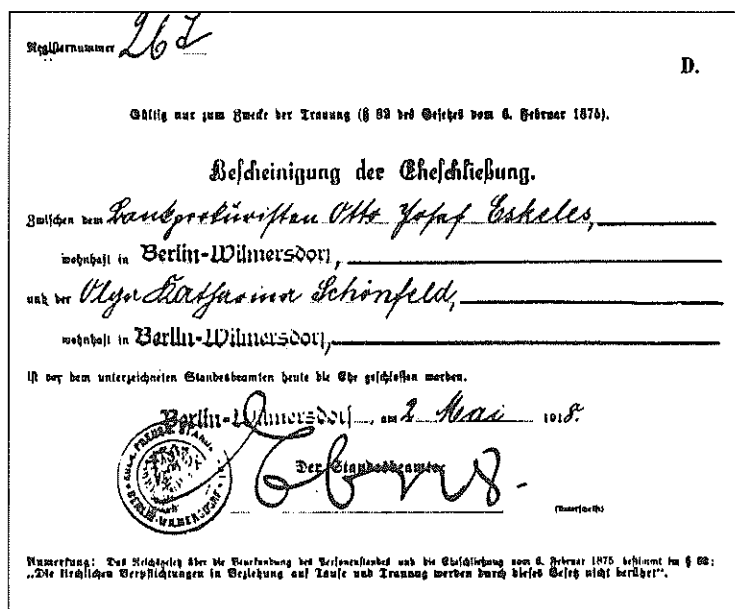 Registernummer 267
D.
Gültig nur zum Zwecke der Trauung (§ 82 des Gesetzes vom 6. Februar 1875).
Bescheinigung der Eheschließung.
Zwischen dem Bankprokuristen Otto Josef Eskeles,
wohnhaft in Berlin-Wilmersdorf,
und der Olga Katharina Schönfeld,
wohnhaft in Berlin-Wilmersdorf,
ist vor dem unterzeichneten Standesbeamten heute die Ehe geschlossen worden.
Berlin-Wilmersdorf, am 2 Mai 1918.
Der Standesbeamte
(Unterschrift)
BERLIN-WILMERSDORF
Anmerkung: Das Reichsgesetz über die Beurkundung des Personenstandes und die Eheschließung vom 6. Februar 1875 bestimmt im § 82:
„Die kirchlichen Verpflichtungen in Beziehung auf Taufe und Trauung werden durch dieses Gesetz nicht berührt“.